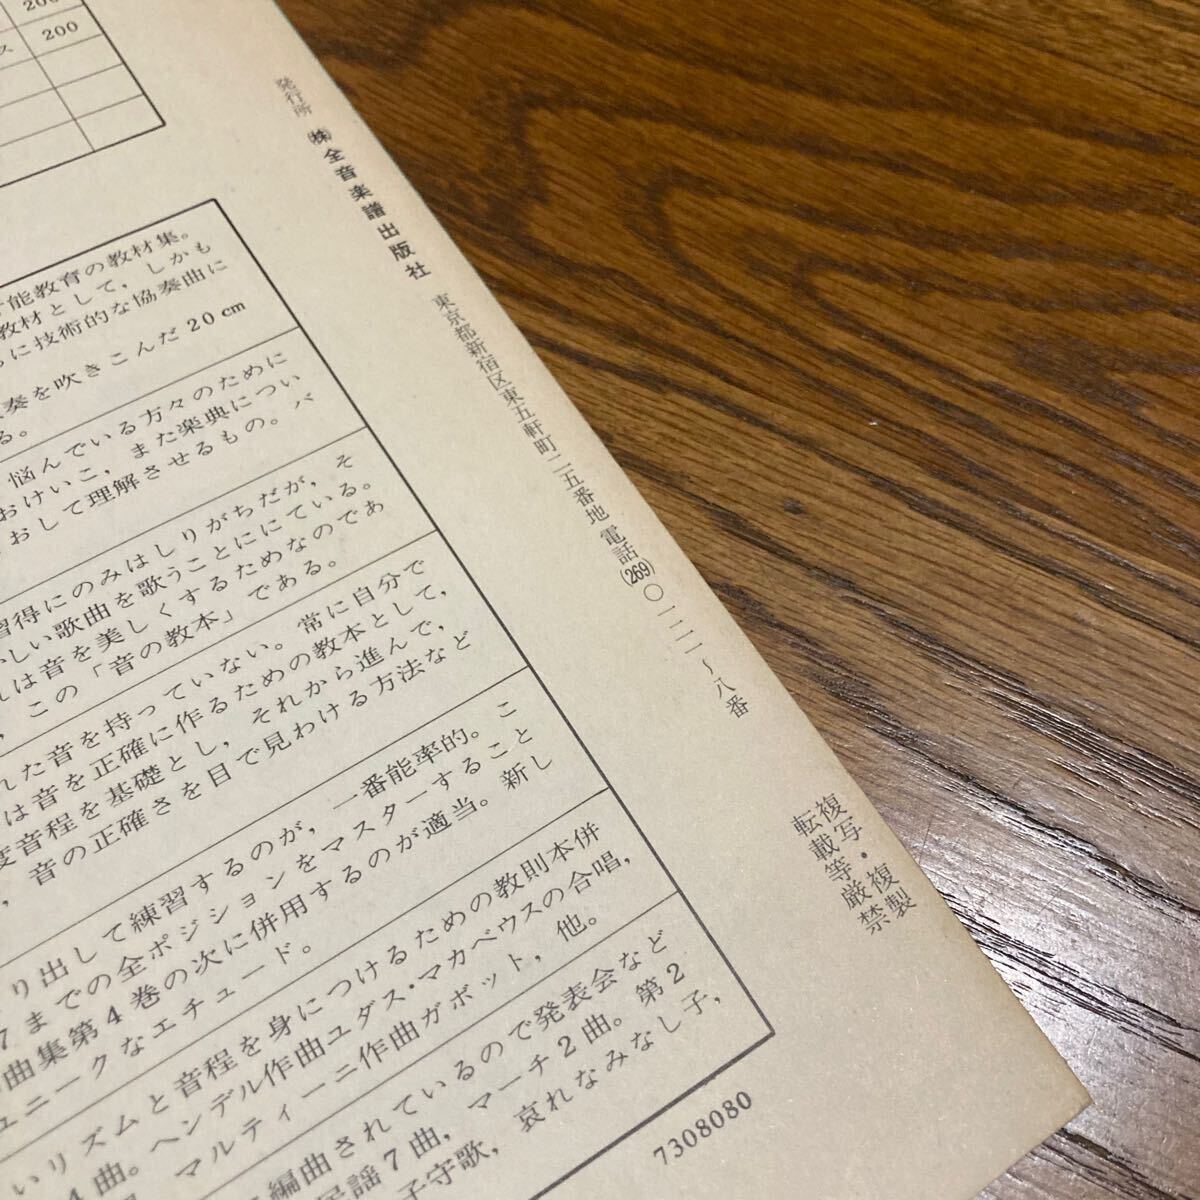 200
ス 200
能教育の教材集。
教材として，しかも
に技術的な協奏曲に
奏を吹きこんだ 20 cm
る。
悩んでいる方々のために
おけいこ，また楽典につい
おして理解させるもの。バ
習得にのみはしりがちだが，そ
しい歌曲を歌うことににている。
れは音を美しくするためなのであ
，この「音の教本」である。
れた音を持っていない。常に自分で
は音を正確に作るための教本として，
度音程を基礎とし，それから進んで，
，音の正確さを目で見わける方法など
り出して練習するのが，一番能率的。こ
7までの全ポジションをマスターすること
曲集第4巻の次に併用するのが適当。新し
ユニークなエチュード。
いリズムと音程を身につけるための教則本併
4曲。ヘンデル作曲ユダス・マカベウスの合唱，
マルティーニ作曲ガボット，他。
編曲されているので発表会など
民謡7曲，マーチ2曲。第2
子守歌，哀れなみなし子，
発行所 ㈱全音楽譜出版社 東京都新宿区東五軒町二五番地 電話(269)〇一二一〜八番
複写・複製
転載等厳禁
7308080